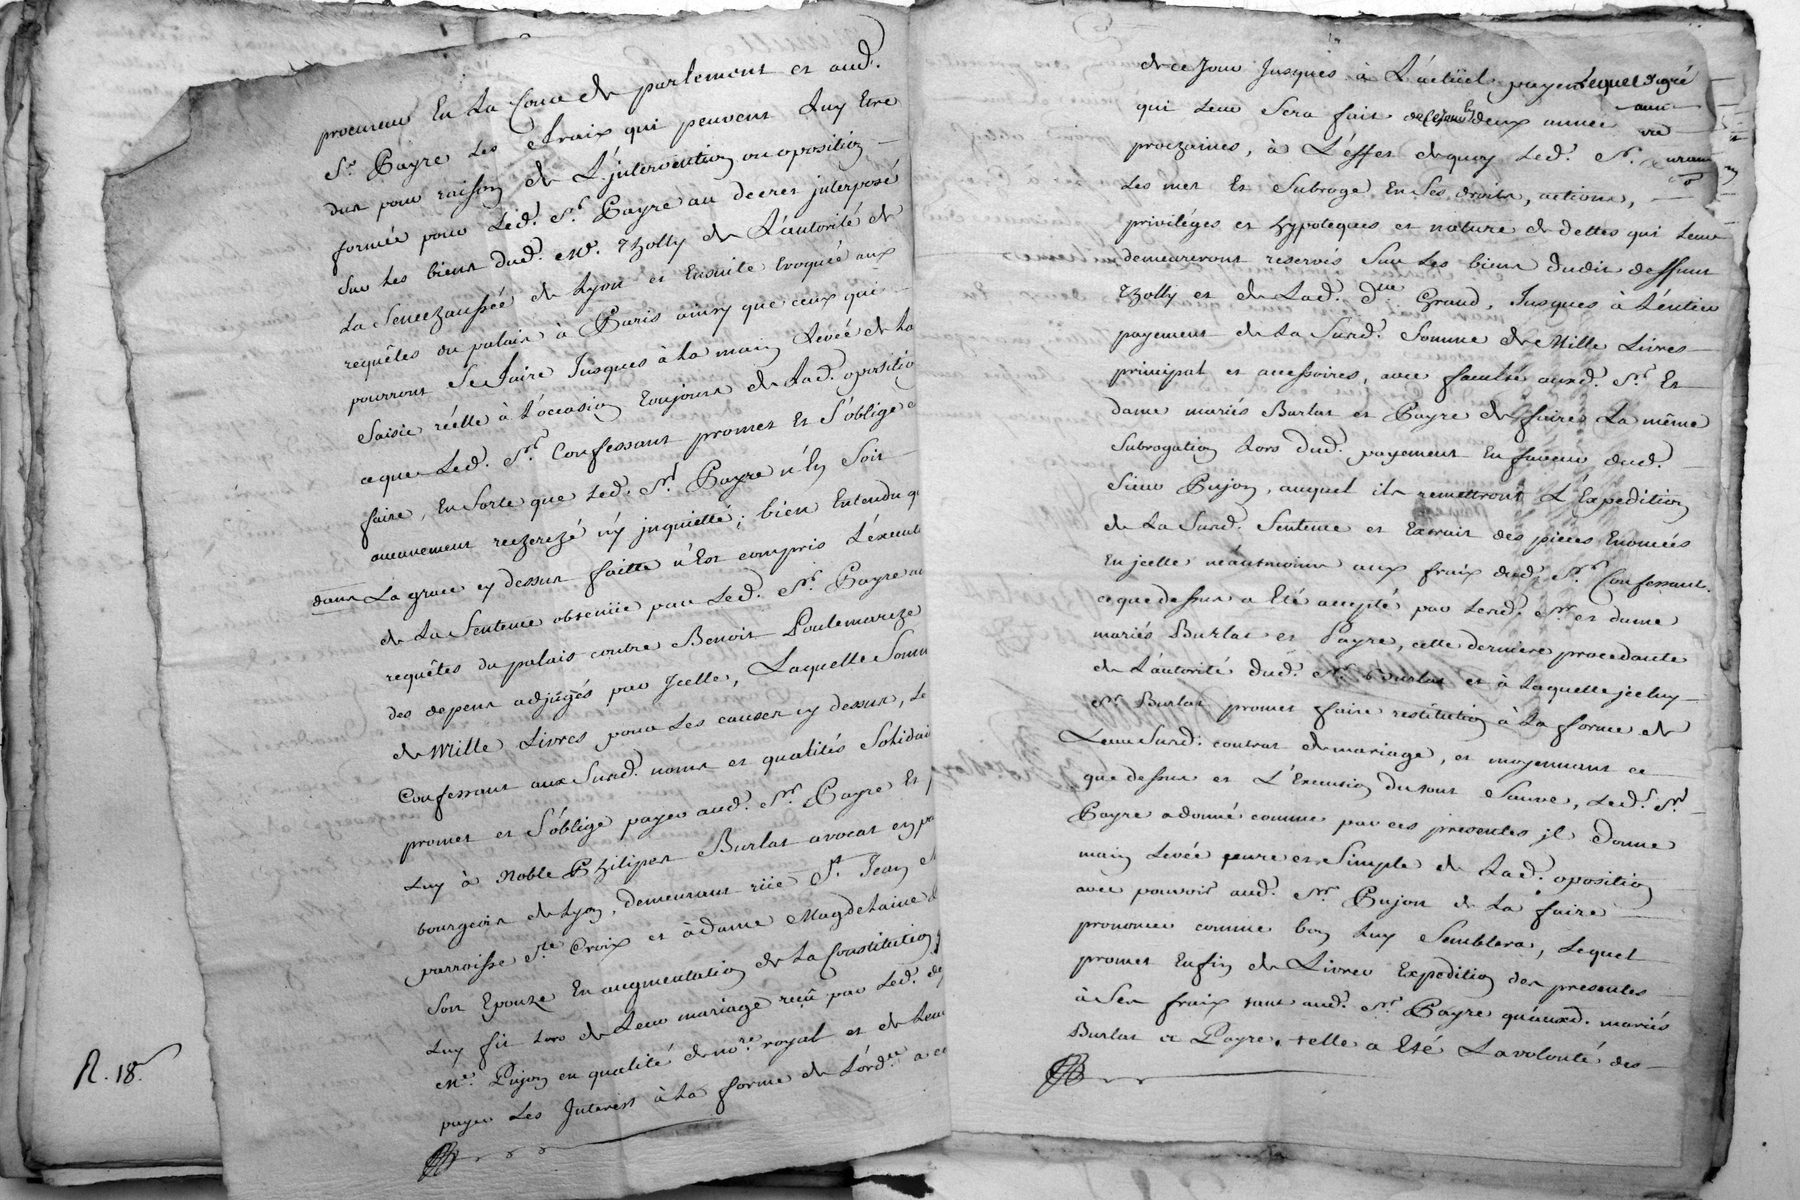 procureur En La Cour de parlement et aud.
Sr. Payre Les fraix qui peuvent Luy Etre
dus pour raison de L'jntervention ou oposition
formée pour Led. Sr. Payre au decret jnterposé
Sur Les biens dud. Mr. Tholly de L'autorité de
La Senechaussée de Lyon et Ensuite Evoquée aux
requêtes du palais à Paris ainsy que ceux qui
pourront Se faire Jusques à La main Levée de La
Saisie réelle à L'occasion Toujours de Lad. opositio
ce que Led. Sr. Confessant promet Et S'oblige
faire, En Sorte que Led. Sr. Payre n'En Soit
aucunement recherché n'y jnquietté; bien Entendu q
dans La grace cy dessus faitte n'Est compris L'execut
de La Sentence obtenüe par Led. Sr. Payre au
requêtes du palais contre Benoit
des depens adjugés par Jcelle, Laquelle Som
de Mille Livres pour Les causes cy dessus, Le
Confessant aux Susd. noms et qualités Solidai
promet et S'oblige payer aud. Sr. Payre Et
Luy à Noble Philipes Burlat avocat en pa
bourgeois de Lyon, demeurant rüe St. Jean
parroisse Ste. Croix et à dame Magdelaine
Son Epouze En augmentation de La Constitution
Luy fit Lors de Leur mariage reçu par Led.
Me. Pujon en qualité de nore. royal et de Leur
payer Les Jnterets à La forme de L'ord.ce a co
R. 18.
de ce Jour Jusques à L'actüel payem Lequel Signé
qui Leur Sera fait deux année
prochaines, à L'effet de quoy Led. Sr.
Les met Et Subroge En Ses droits, actions,
privilèges et hypoteques et nature de dettes qui Leur
demeureront reservés Sur Les biens dudit deffunt
Tholly et de Lad. Dlle Grand, Jusques à L'entier
payement de La Susd. Somme de Mille Livres
principal et accessoires, avec faculté auxd. Sr. Et
dame mariés Burlat et Payre de faire La même
Subrogation Lors dud. payement En faveur dud.
Sieur Pujon, auquel ils remettront L'Expedition
de La Susd. Sentence et Extrait des pieces Enoncées
En jcelle néantmoins aux fraix dud. Sr. Confessant
ce que dessus a Eté accepté par Lesd. Sr. et dame
mariés Burlat et Payre, cette derniere procedante
de L'autorité dud. Sr. Burlat et à Laquelle jceluy
Sr. Burlat promet faire restitution à La forme de
Leur Susd. contrat de mariage, et moyennant ce
que dessus et L'Execution du tout Sauve, Led. Sr.
Payre a donné comme par ces presentes jl donne
main Levée pure et Simple de Lad. oposition
avec pouvoir aud. Sr. Pujon de La faire
prononcer comme bon Luy Semblera, Lequel
promet Enfin de Livrer Expedition des presentes
à Ses fraix tant aud. Sr. Payre qu'auxd. mariés
Burlat et Payre. telle a Eté La volonté des